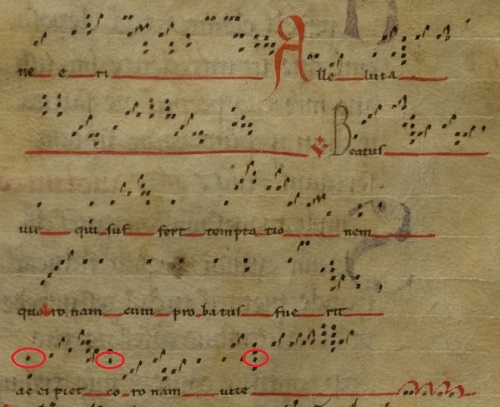 ne e ri Alle luia
Beatus
uir qui suf fert tempta tio nem
quo ro nam cum pro ba tus fue rit
ac ci piet co ro nam uite